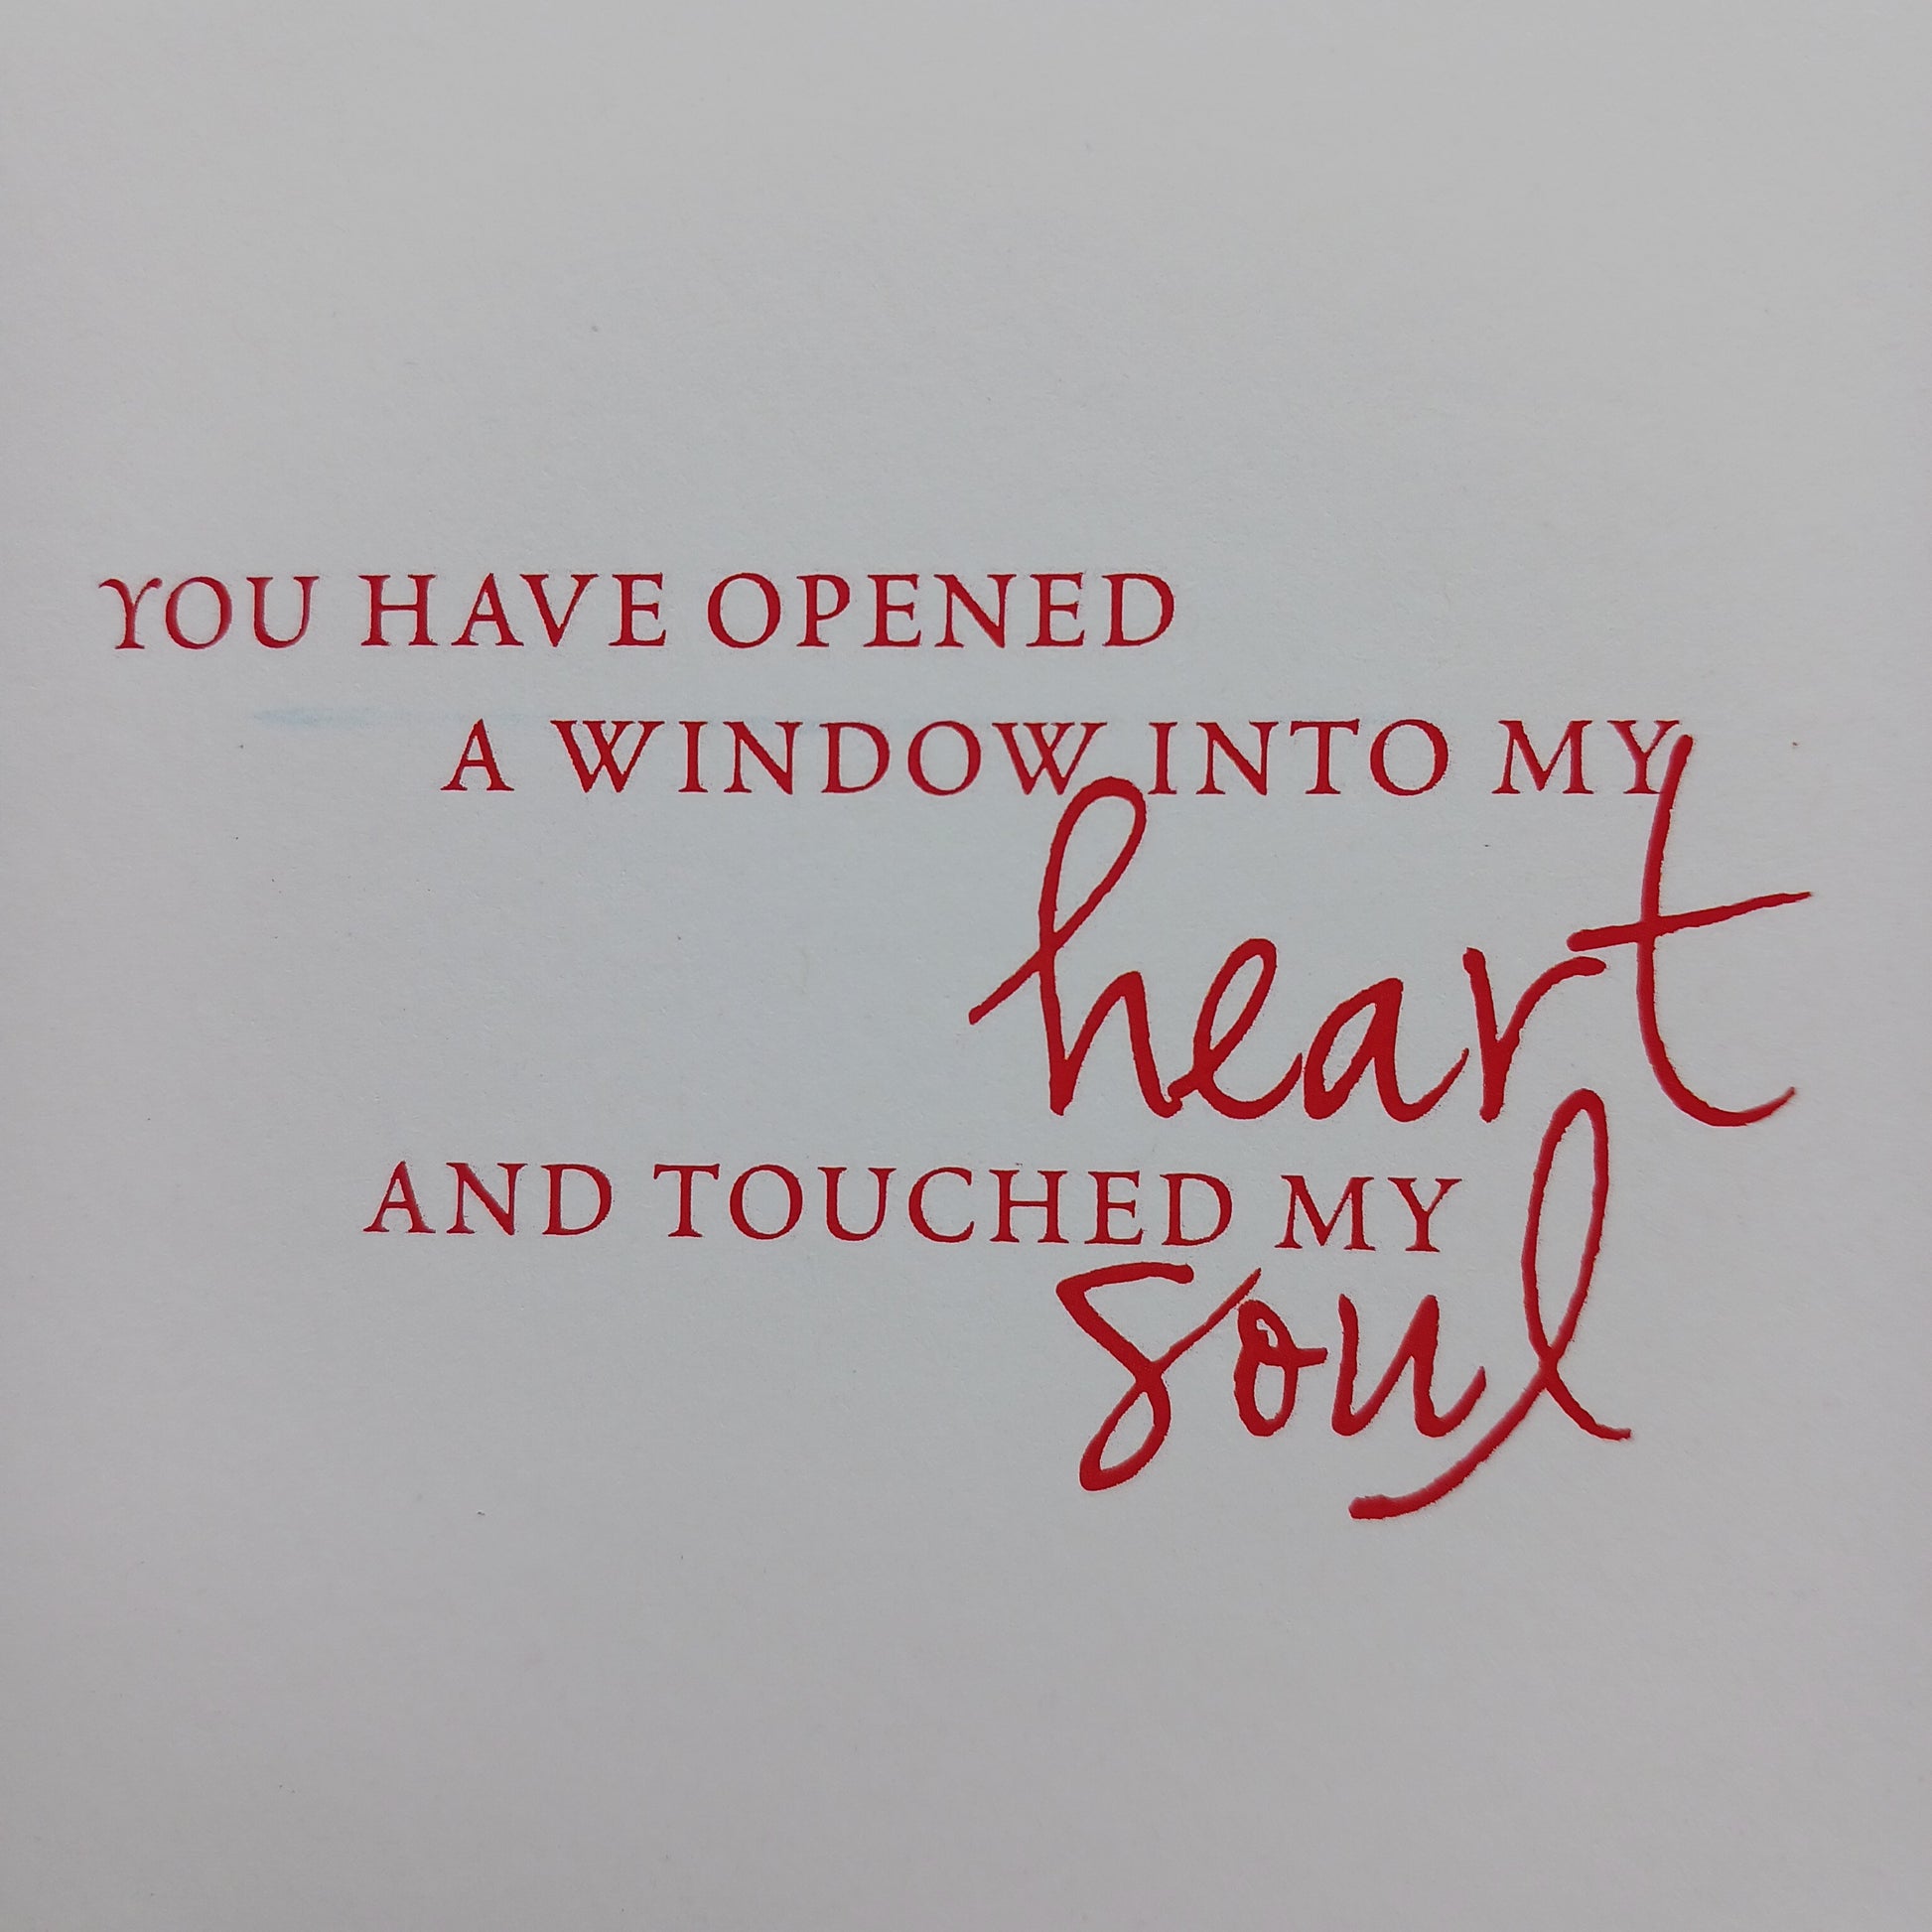 YOU HAVE OPENED
A WINDOW INTO MY
heart
AND TOUCHED MY
soul